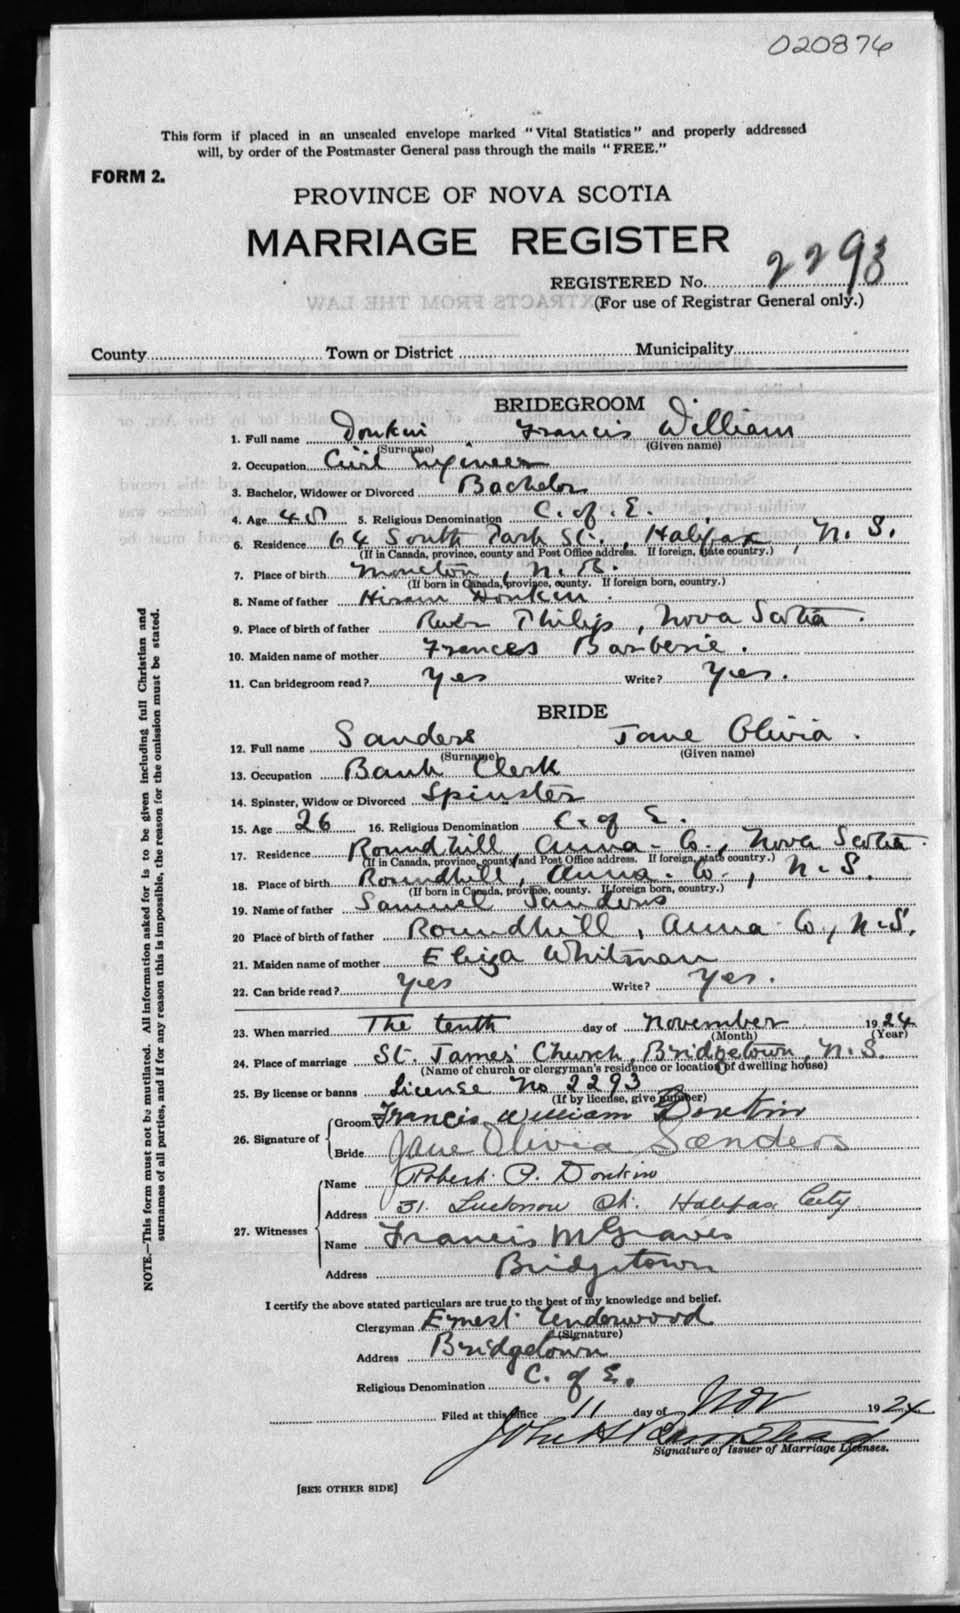 020876
This form if placed in an unsealed envelope marked "Vital Statistics" and properly addressed
will, by order of the Postmaster General pass through the mails "FREE."
FORM 2.
PROVINCE OF NOVA SCOTIA
MARRIAGE REGISTER
REGISTERED No. 2293
(For use of Registrar General only.)
County Town or District Municipality
BRIDEGROOM
1. Full name Donkin Francis William
(Surname) (Given name)
2. Occupation Civil Engineer
3. Bachelor, Widower or Divorced Bachelor
4. Age 45 5. Religious Denomination C. of E.
6. Residence 64 South Park St., Halifax, N. S.
(If in Canada, province, county and Post Office address. If foreign, state country.)
7. Place of birth Moncton, N. B.
(If born in Canada, province, county. If foreign born, country.)
8. Name of father Hiram Donkin.
9. Place of birth of father River Philip, Nova Scotia.
10. Maiden name of mother Frances Barberie.
11. Can bridegroom read? Yes Write? Yes.
BRIDE
12. Full name Sanders Jane Olivia.
(Surname) (Given name)
13. Occupation Bank Clerk
14. Spinster, Widow or Divorced Spinster
15. Age 26 16. Religious Denomination C. of E.
17. Residence Roundhill, Anna. Co., Nova Scotia.
(If in Canada, province, county and Post Office address. If foreign, state country.)
18. Place of birth Roundhill, Anna. Co., N.S.
(If born in Canada, province, county. If foreign born, country.)
19. Name of father Samuel Sanders
20 Place of birth of father Roundhill, Anna. Co, N.S.
21. Maiden name of mother Eliza Whitman
22. Can bride read? Yes Write? Yes.
23. When married The tenth day of November 1924
(Month) (Year)
24. Place of marriage St. James' Church, Bridgetown, N.S.
(Name of church or clergyman's residence or location of dwelling house)
25. By license or banns License No 2293
(If by license, give number)
26. Signature of Groom Francis William Donkin
Bride Jane Olivia Sanders
27. Witnesses Name Robert P. Donkin
Address 31. Lucknow St. Halifax City.
Name Francis M Graves
Address Bridgetown
I certify the above stated particulars are true to the best of my knowledge and belief.
Clergyman Ernest Underwood
(Signature)
Address Bridgetown
Religious Denomination C. of E.
Filed at this office 11 day of Nov 1924
John H
Signature of Issuer of Marriage Licenses.
[SEE OTHER SIDE]
NOTE.—This form must not be mutilated. All information asked for is to be given including full Christian and
surnames of all parties, and if for any reason this is impossible, the reason for the omission must be stated.